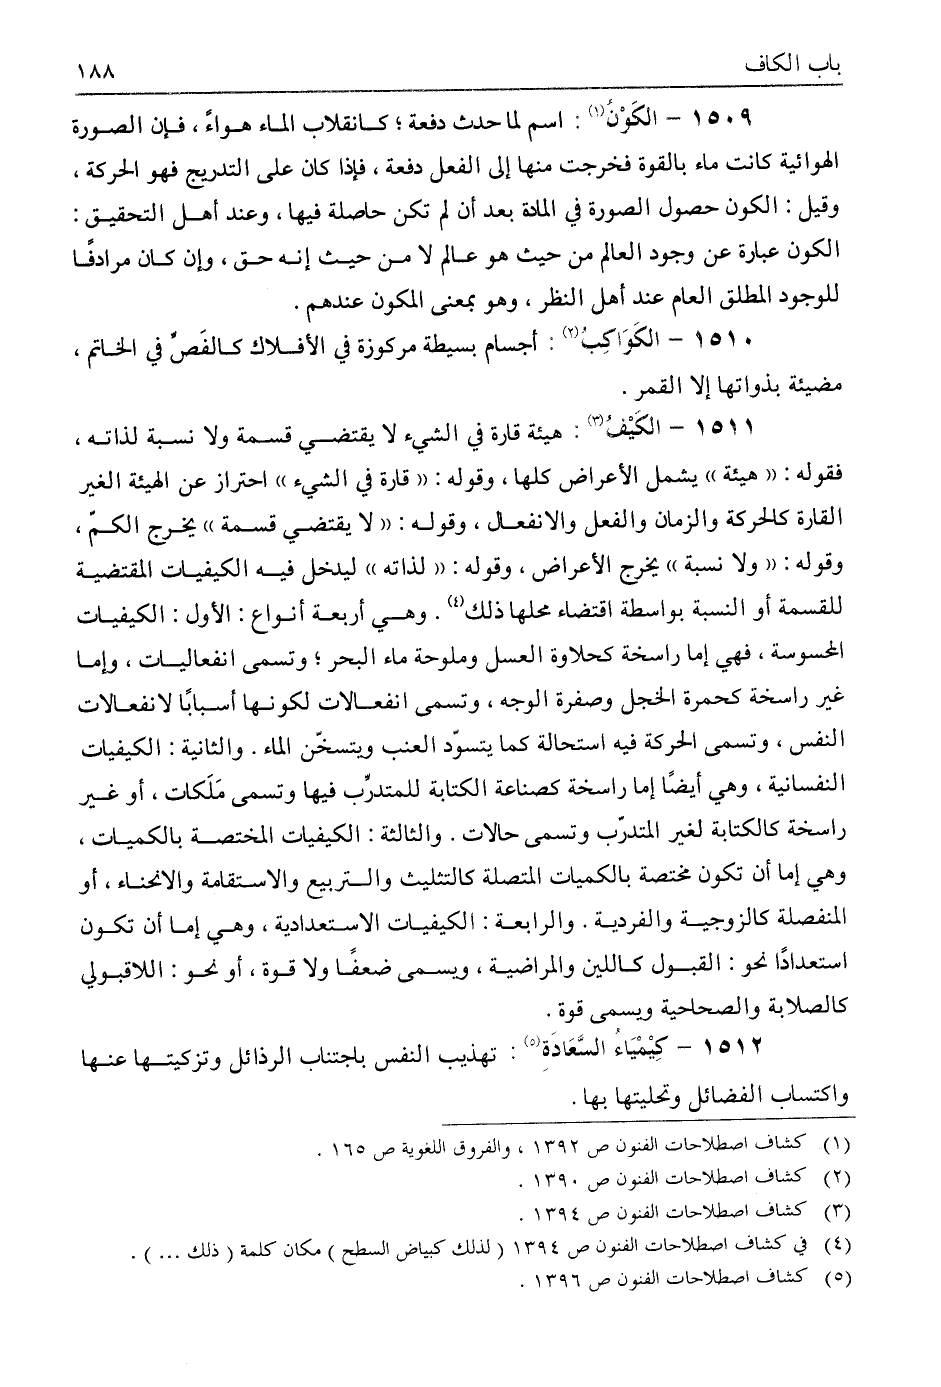 باب الكاف ١٨٨
١٥٠٩ – الكَوْنُ(١) : اسم لما حدث دفعة ؛ كـانقلاب المـاء هـواءً ، فـإن الصـورة
الهوائية كانت ماء بالقوة فخرجت منها إلى الفعل دفعة ، فإذا كان على التدريج فهو الحركة ،
وقيل : الكون حصول الصورة في المادة بعد أن لم تكن حاصلة فيها ، وعند أهـل التحقيـق :
الكون عبارة عن وجود العالم من حيث هو عـالم لا مـن حيـث إنـه حـق ، وإن كـان مرادفًـا
للوجود المطلق العام عند أهل النظر ، وهو بمعنى المكون عندهم .
١٥١٠ – الكَوَاكِبُ(٢) : أجسام بسيطة مركوزة في الأفـلاك كـالفَصِّ في الخـاتم ،
مضيئة بذواتها إلا القمر .
١٥١١ – الكَيْفُ(٣) : هيئة قارة في الشيء لا يقتضـي قسـمة ولا نسـبة لذاتـه ،
فقوله : « هيئة » يشمل الأعراض كلها ، وقوله : « قارة في الشيء » احتراز عن الهيئة الغير
القارة كالحركة والزمان والفعل والانفعـال ، وقولـه : « لا يقتضي قسمة » يخـرج الكـمّ ،
وقوله : « ولا نسبة » يخرج الأعراض ، وقوله : « لذاته » ليدخل فيـه الكيفيـات المقتضيـة
للقسمة أو النسبة بواسطة اقتضاء محلها ذلك(٤) . وهـي أربعـة أنـواع : الأول : الكيفيـات
المحسوسة ، فهي إما راسخة كحلاوة العسل وملوحة ماء البحر ؛ وتسمى انفعاليـات ، وإمـا
غير راسخة كحمرة الخجل وصفرة الوجه ، وتسمى انفعـالات لكونـها أسـبابًا لانفعـالات
النفس ، وتسمى الحركة فيه استحالة كما يتسوّد العنب ويتسخّن الماء . والثانية : الكيفيات
النفسانية ، وهي أيضًا إما راسخة كصناعة الكتابة للمتدرِّب فيها وتسمى مَلَكات ، أو غـير
راسخة كالكتابة لغير المتدرّب وتسمى حالات . والثالثة : الكيفيات المختصـة بـالكميـات ،
وهي إما أن تكون مختصة بالكميات المتصلة كالتثليث والـتربيع والاسـتقامة والانحنـاء ، أو
المنفصلة كالزوجيـة والفرديـة . والرابعـة : الكيفيات الاسـتعدادية ، وهـي إمـا أن تكـون
استعدادًا نحو : القبـول كـاللين والمراضيـة ، ويسـمى ضعفًـا ولا قـوة ، أو نحـو : اللاقبـولي
كالصلابة والصحاحية ويسمى قوة .
١٥١٢ – كِيْمْيَاءُ السَّعَادَةِ(٥) : تهذيب النفس باجتناب الرذائل وتزكيتـها عنـها
واكتساب الفضائل وتحليتها بها .
(١) كشاف اصطلاحات الفنون ص ١٣٩٢ ، والفروق اللغوية ص ١٦٥ .
(٢) كشاف اصطلاحات الفنون ص ١٣٩٠ .
(٣) كشاف اصطلاحات الفنون ص ١٣٩٤ .
(٤) في كشاف اصطلاحات الفنون ص ١٣٩٤ ( لذلك كبياض السطح ) مكان كلمة ( ذلك ... ) .
(٥) كشاف اصطلاحات الفنون ص ١٣٩٦ .